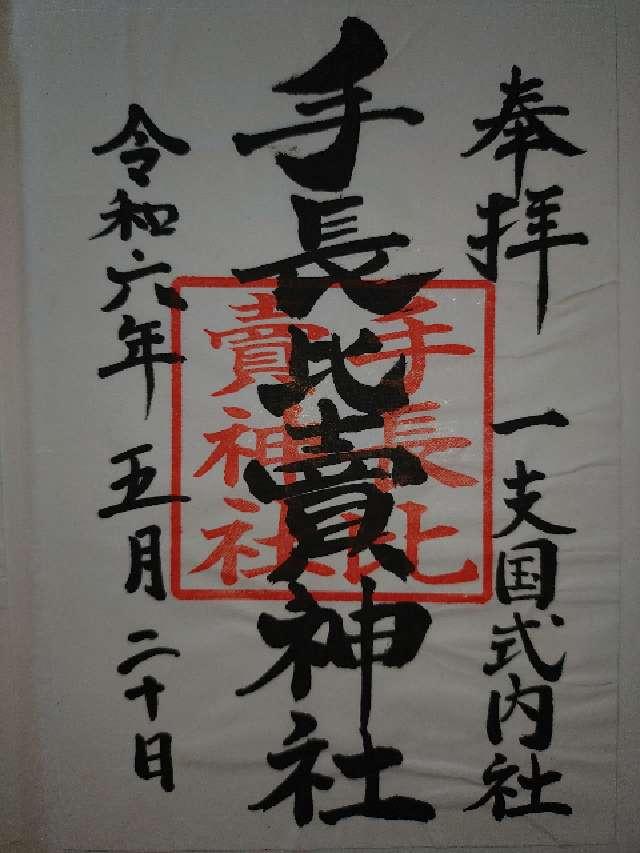 奉拝
一支国式内社
手長比賣神社
手長比
賣神社
令和六年五月二十日